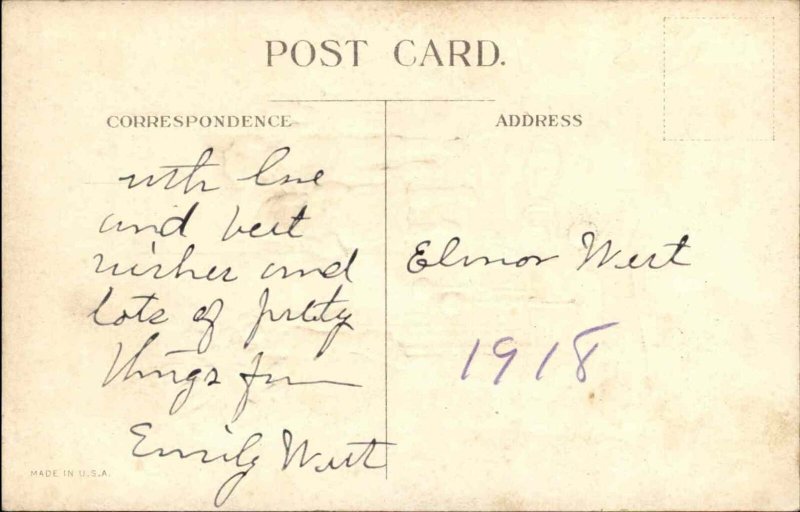 POST CARD.
CORRESPONDENCE
ADDRESS
with love
and best
wishes and
lots of pretty
things from
Emily West
Elinor West
1918
MADE IN U.S.A.